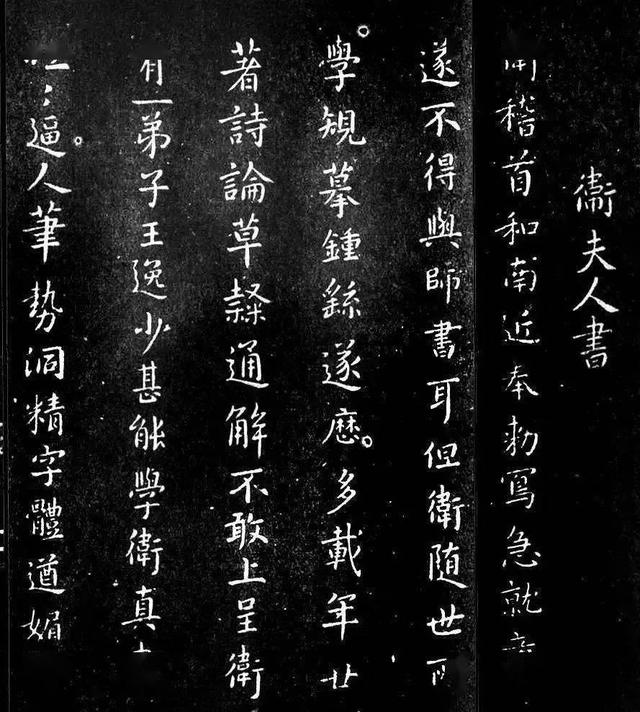 衛夫人書
稽首和南近奉勅寫急就
遂不得與師書耳但衛隨世所
學規摹鍾繇遂歷多載年廿
著詩論草隸通解不敢上呈衛
有一弟子王逸少甚能學衛真
逼人筆勢洞精字體遒媚